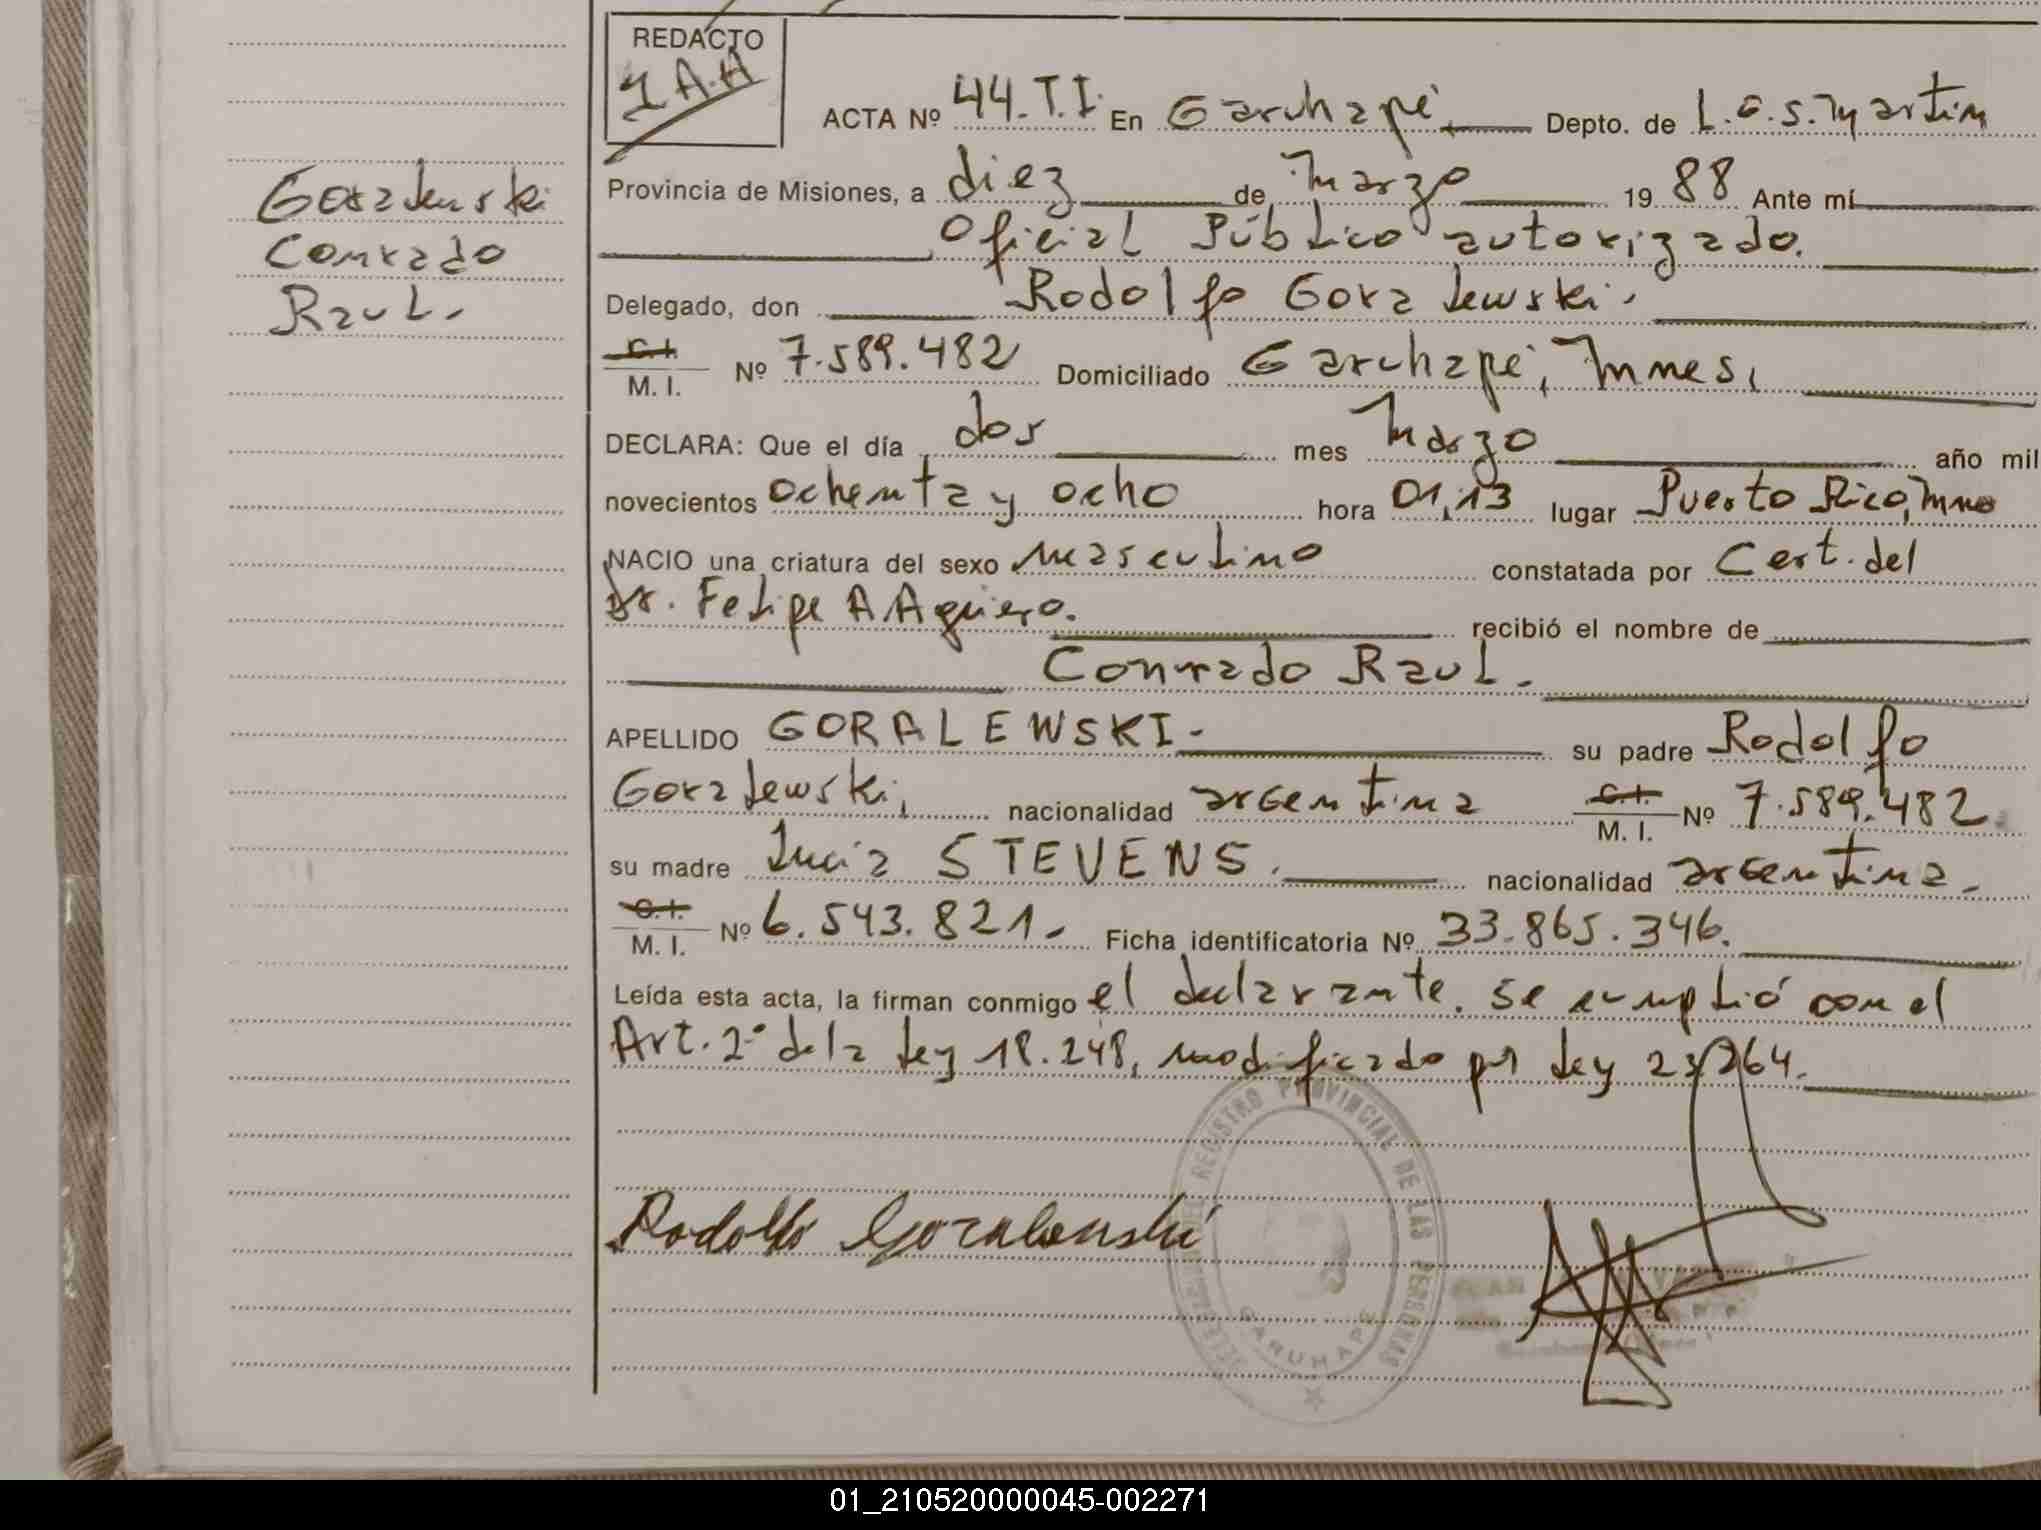 REDACTO
J A.A
ACTA Nº 44.T.I. En Garuhapé Depto. de L.G.S.Martin
Goralewski
Conrado
Raul.
Provincia de Misiones, a diez de Marzo 1988 Ante mí
Oficial Público autorizado.
Delegado, don Rodolfo Goralewski.
C.I. M. I. Nº 7.589.482 Domiciliado Garuhapé, Mnes,
DECLARA: Que el día dos mes Marzo año mil
novecientos ochenta y ocho hora 01,13 lugar Puerto Rico, Mnes
NACIO una criatura del sexo masculino constatada por Cert. del
Dr. Felipe A Aguero. recibió el nombre de
Conrado Raul.
APELLIDO GORALEWSKI.- su padre Rodolfo
Goralewski, nacionalidad argentina C.I. M. I. Nº 7.589.482.
su madre Lucia STEVENS. nacionalidad argentina.
C.I. M. I. Nº 6.543.821.- Ficha identificatoria Nº 33.865.346.
Leída esta acta, la firman conmigo el declarante. Se cumplió con el
Art. 2º de la Ley 18.248, modificado por Ley 23.264.
DELEGACION DEL REGISTRO PROVINCIAL DE LAS PERSONAS
GARUHAPE
Rodolfo Goralewski
01_210520000045-002271